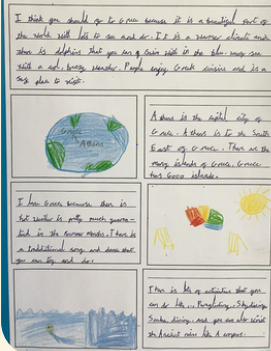 I think you should go to Greece because it is a beautiful part of
the world with lots to see and do. It is a warmer climate and
there is dolphins that you can see swim in the blue sea
with a cool, breezy weather. People enjoy Greek cuisine and is a
safe place to visit.
Greece
Athens
Athens is the capital city of
Greece. Athens is to the South
East of Greece. There are the
many islands of Greece. Greece
has 6000 islands.
I love Greece because there is
hot weather is pretty much guaran-
teed in the summer months. There is
a traditional song and dance that
you can try and do.
There is lots of activities that you
can do like... Paragliding, Skydiving
Scuba diving, and you can also visit
the Ancient ruins like Acropolis.